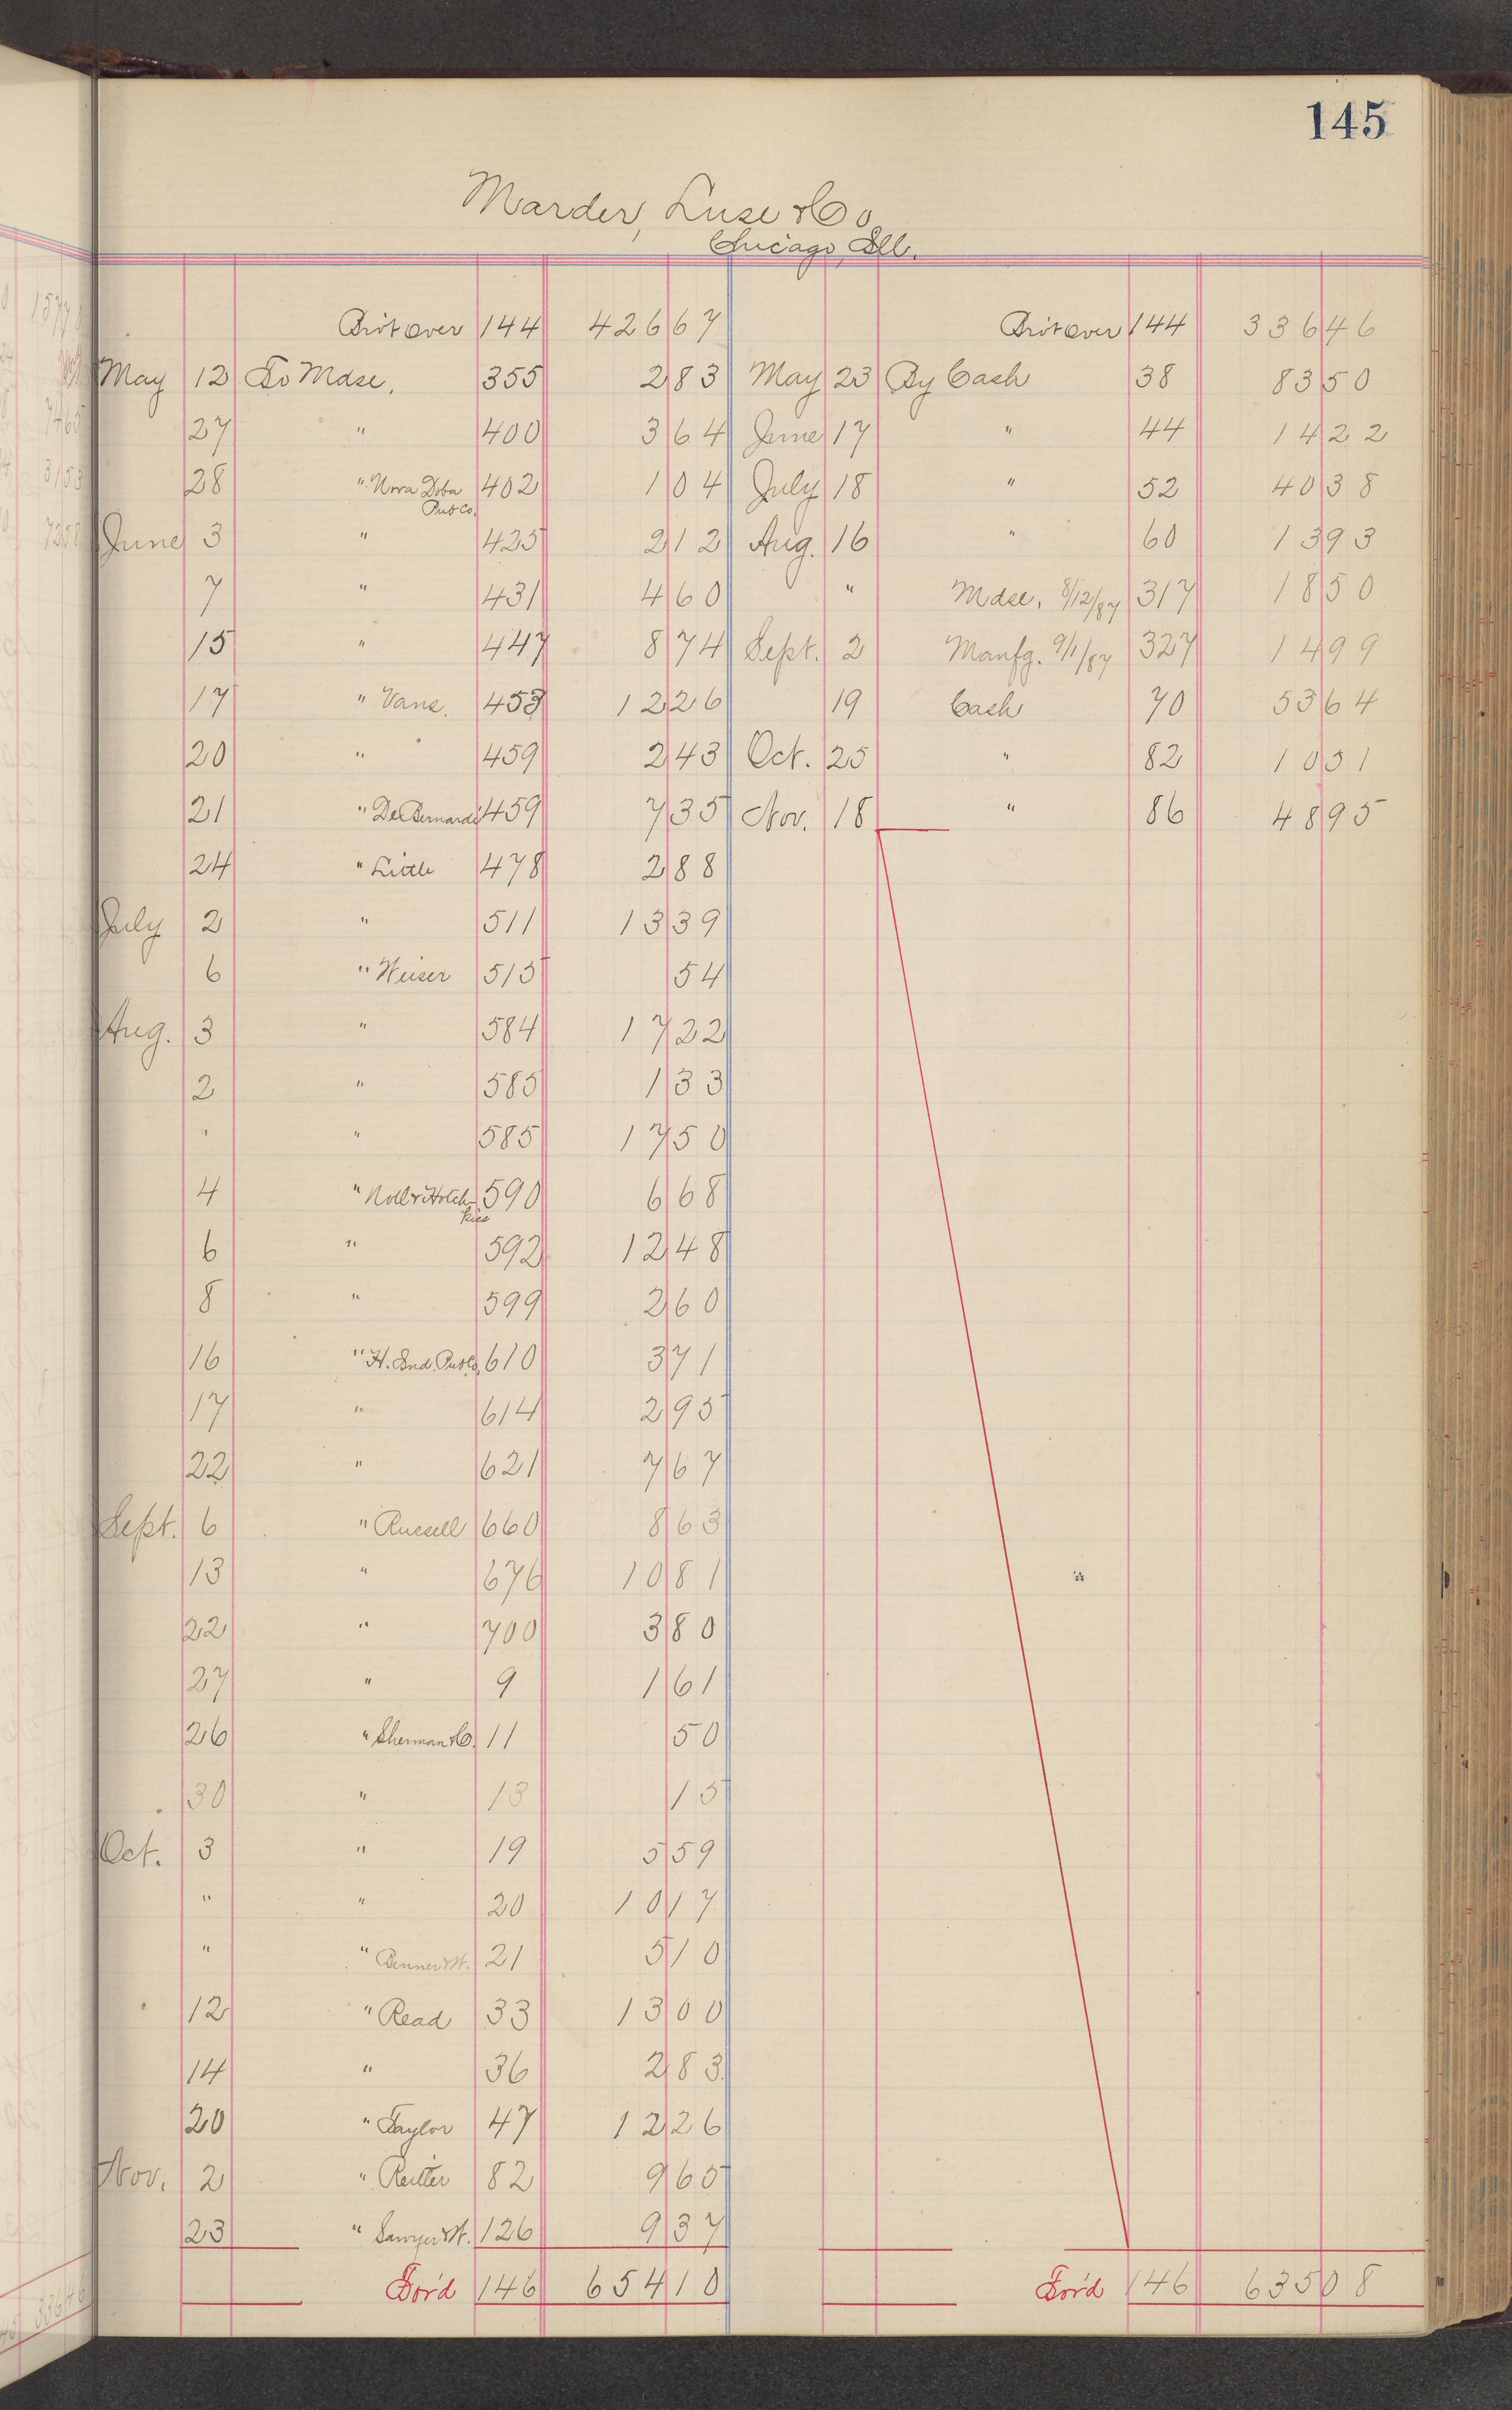 145
Marder, Luse & Co
Chicago, Ill.
Bro't over 144 426 67 Bro't over 144 336 46
May 12 To Mdse, 355 2 83 May 23 By Cash 38 83 50
27 " 400 3 64 June 17 " 44 14 22
28 " Nora Doba 402 1 04 July 18 " 52 40 38
Pub Co.
June 3 " 425 2 12 Aug. 16 " 60 13 93
7 " 431 4 60 " Mdse, 8/12/87 317 18 50
15 " 447 8 74 Sept. 2 Manfg. 9/1/87 327 14 99
17 " Vans. 453 12 26 19 Cash 70 53 64
20 " 459 2 43 Oct. 25 " 82 10 51
21 " De Bernardi 459 7 35 Nov. 18 " 86 48 95
24 " Little 478 2 88
July 2 " 511 13 39
6 " Weiser 515 54
Aug. 3 " 584 17 22
2 " 585 1 33
" " 585 17 50
4 " Noll & Hotch- 590 6 68
kiss
6 " 592 12 48
8 " 599 2 60
16 " H. Ind. Pub Co. 610 3 71
17 " 614 2 95
22 " 621 7 67
Sept. 6 " Russell 660 8 63
13 " 676 10 81
22 " 700 3 80
27 " 9 1 61
26 " Sherman & Co. 11 50
30 " 13 15
Oct. 3 " 19 5 59
" " 20 10 17
" " Benner & W. 21 5 10
12 " Read 33 13 00
14 " 36 2 83
20 " Taylor 47 12 26
Nov. 2 " Reitter 82 9 65
23 " Sawyer & W. 126 9 37
For'd 146 654 10 For'd 146 635 08